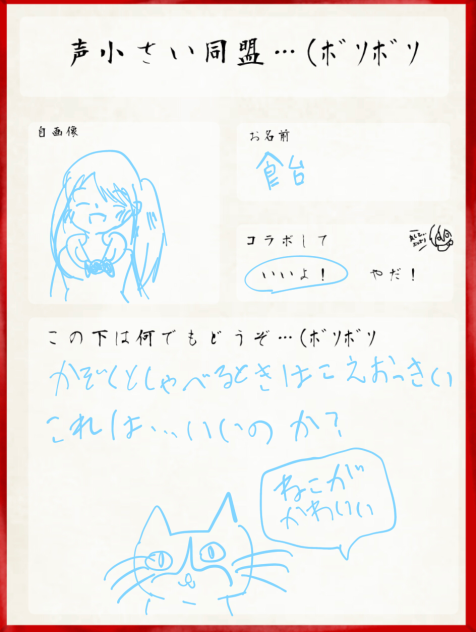 声小さい同盟…(ボソボソ
自画像
お名前
飴台
コラボして
いいよ！
やだ！
この下は何でもどうぞ…(ボソボソ
かぞくとしゃべるときはこえおっきい
これは…いいのか？
ねこが
かわいい